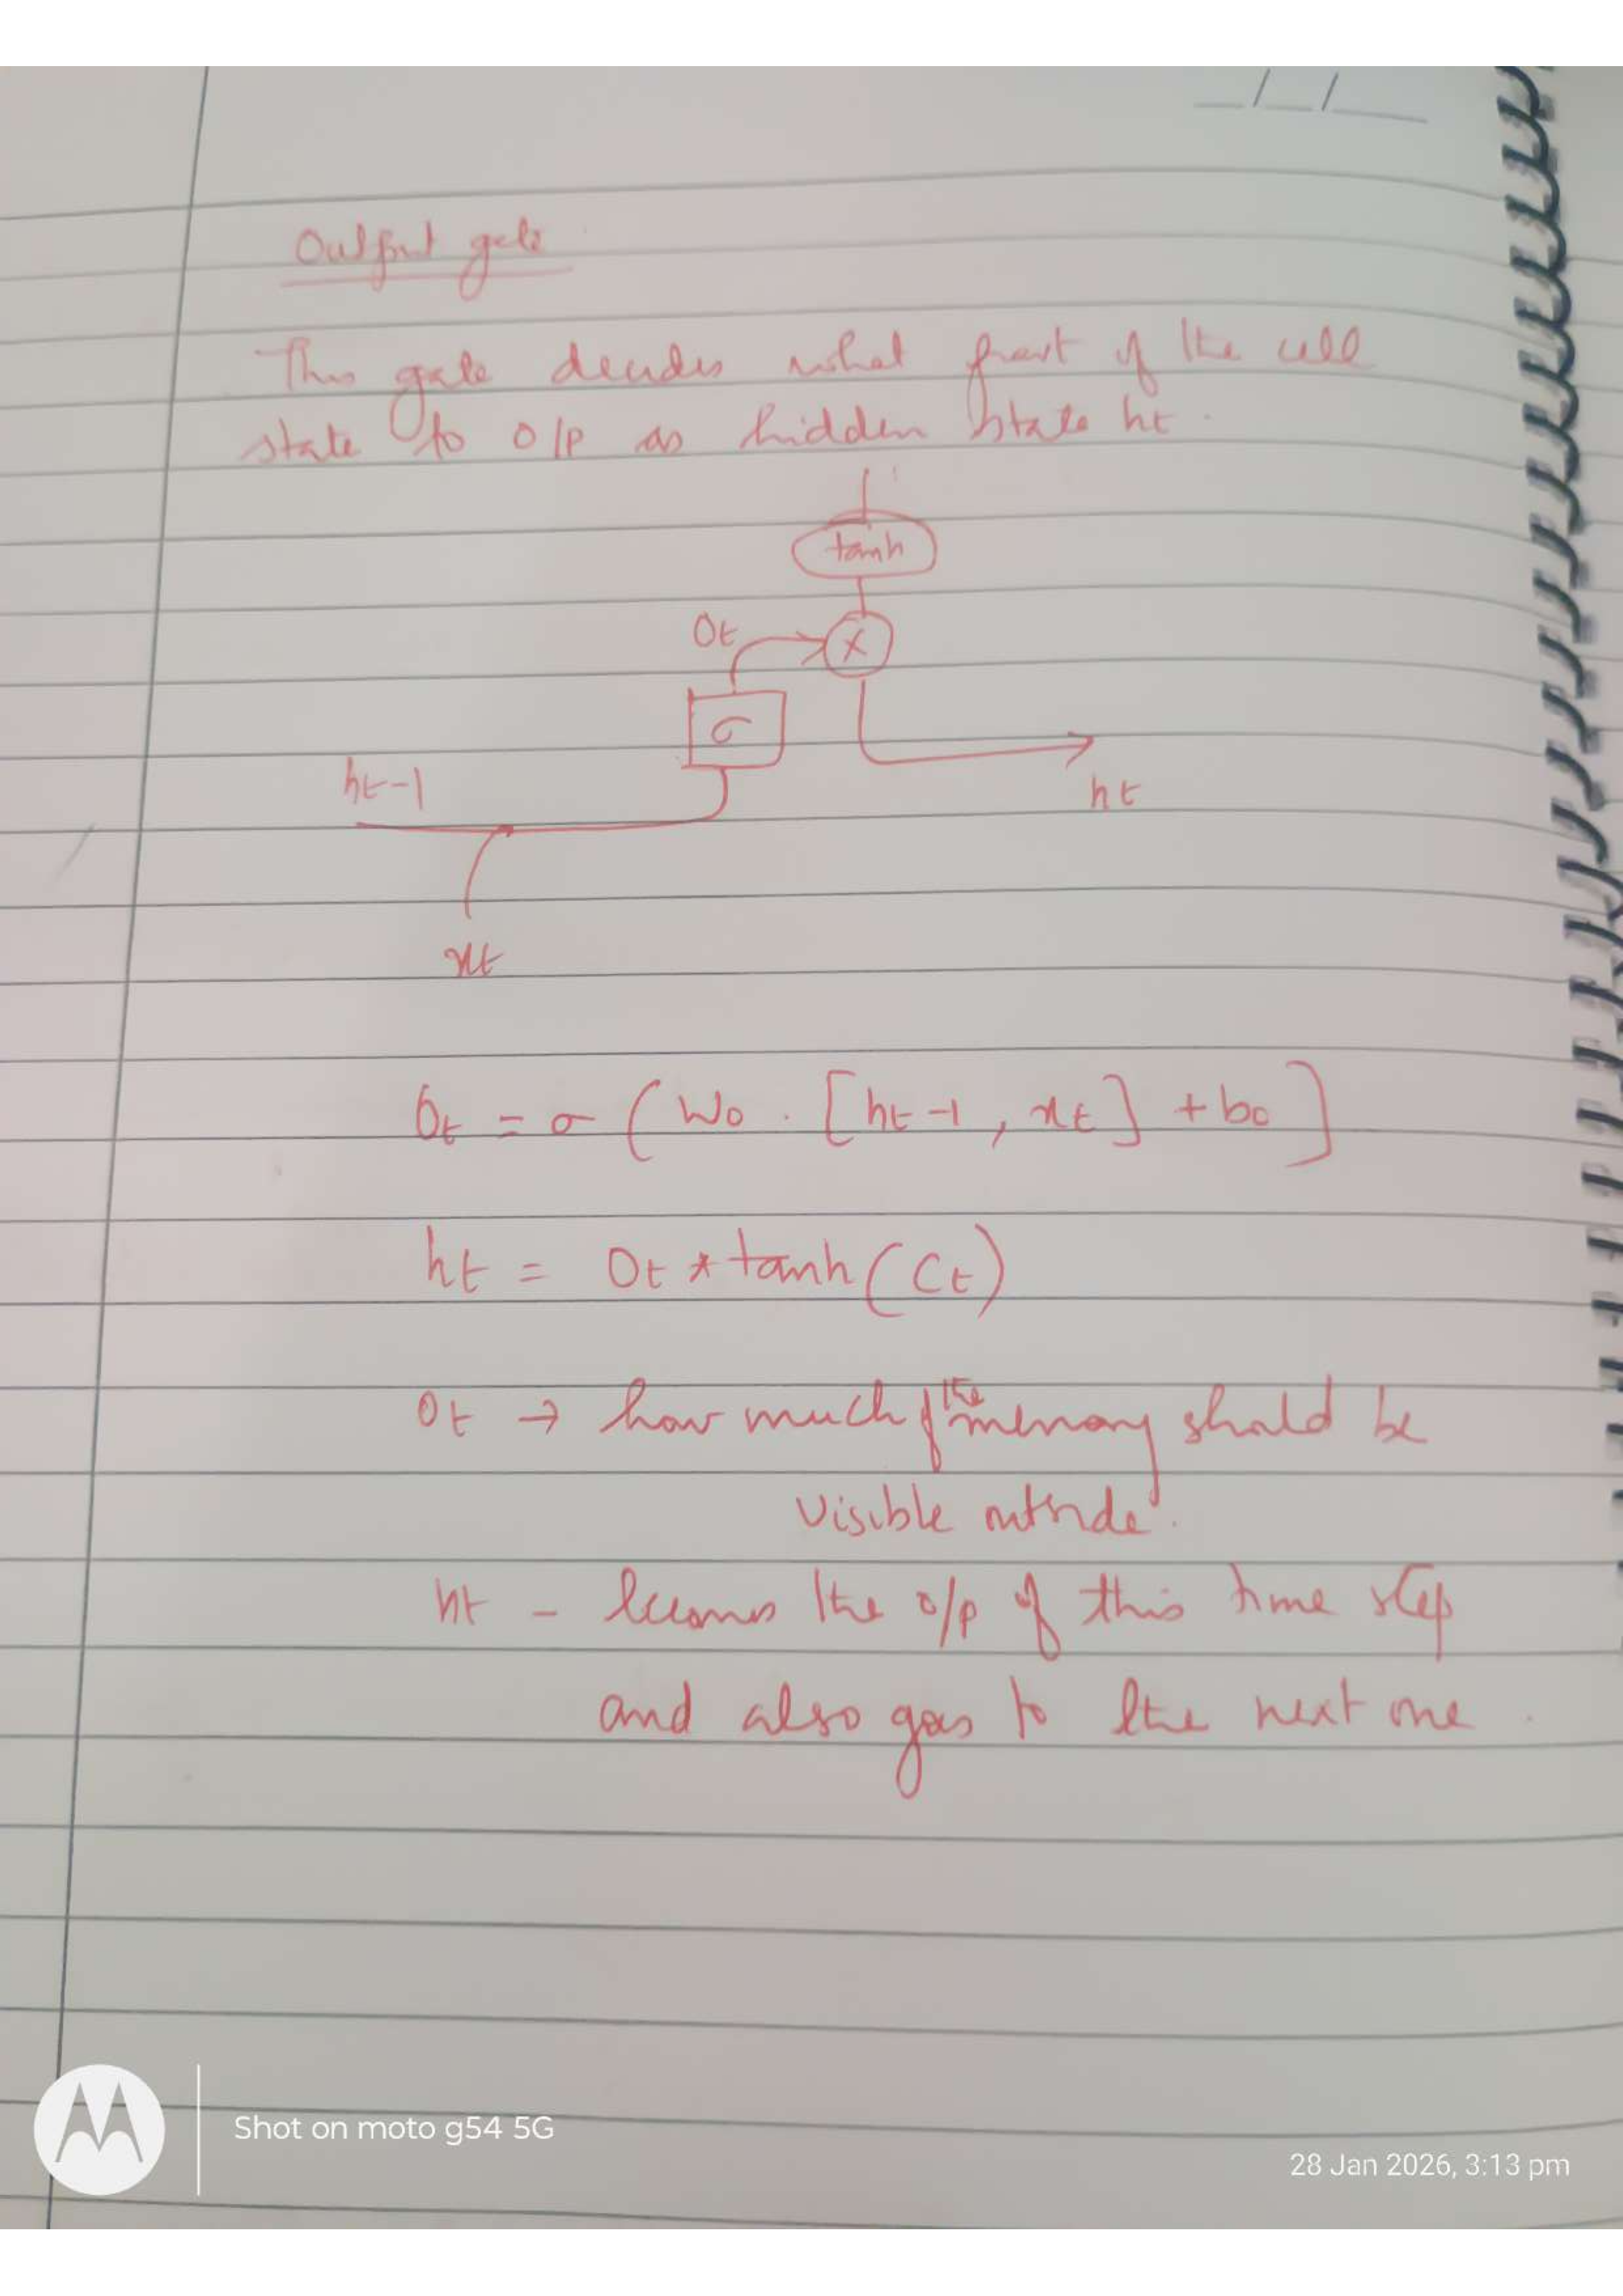 _/_/_
Output gate
This gate decides what part of the cell
state to o/p as hidden state ht.
tanh
Ot
x
σ
ht-1
ht
xt
Ot = σ ( Wo . [ht-1, xt] + bo ]
ht = Ot * tanh (Ct)
Ot → how much of the memory should be
visible outside.
ht - becomes the o/p of this time step
and also goes to the next one.
Shot on moto g54 5G
28 Jan 2026, 3:13 pm